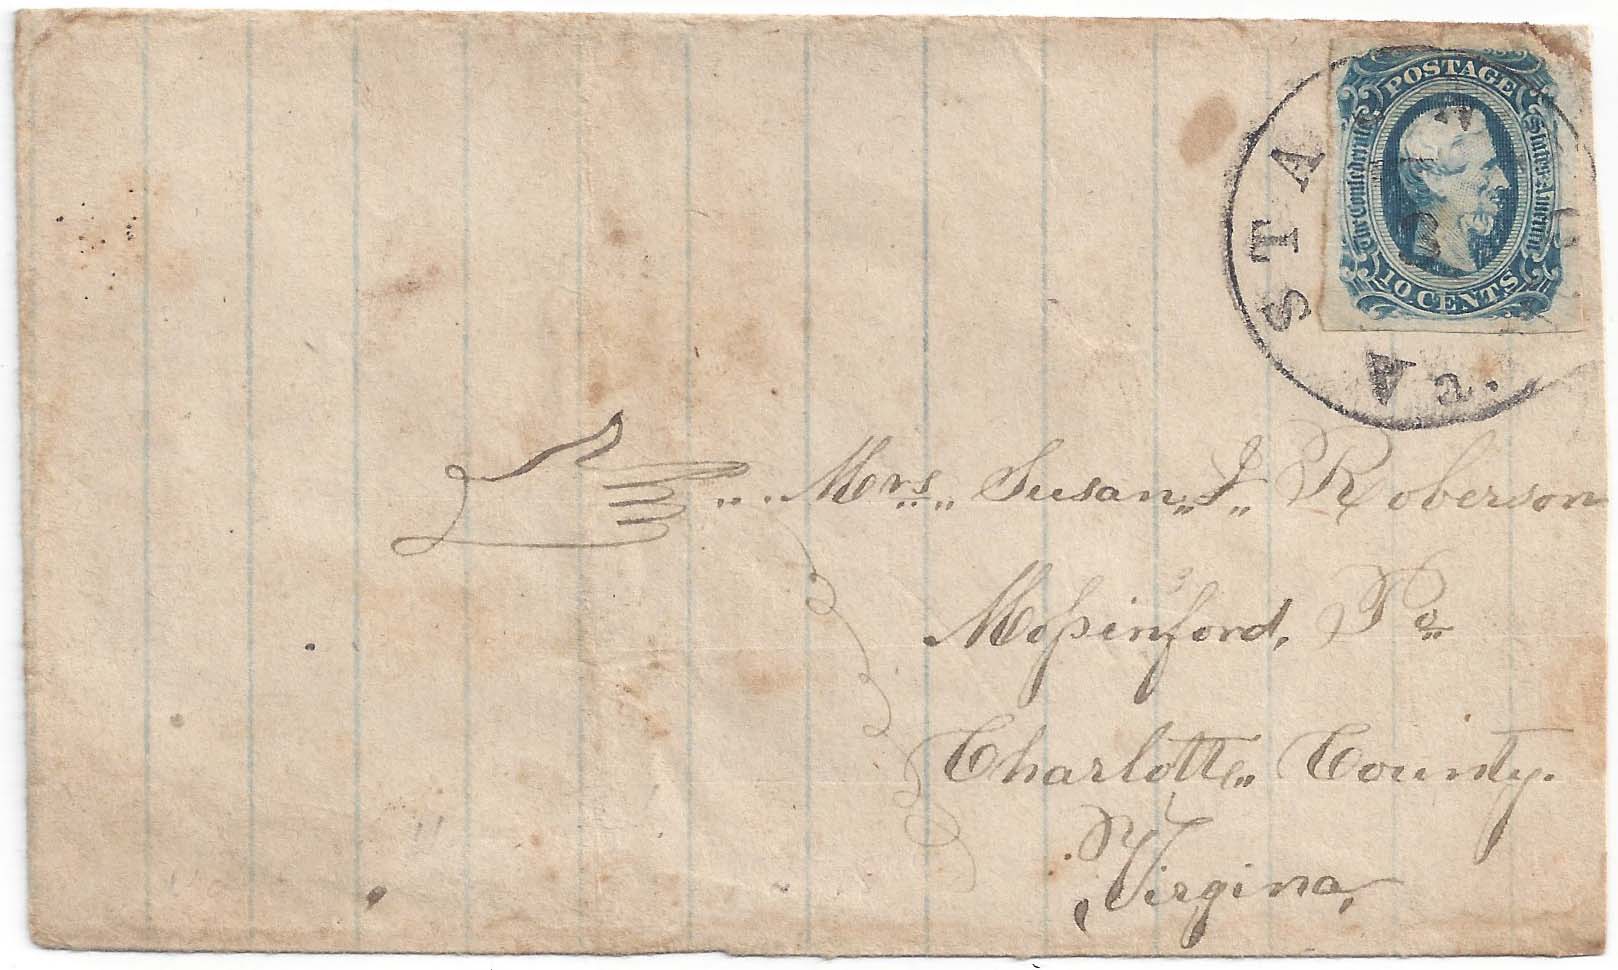 POSTAGE
The Confederate States of America
10 CENTS
STA
Va.
Mrs. Susan J. Roberson
Mossinford, Po
Charlotte County.
Virgina,